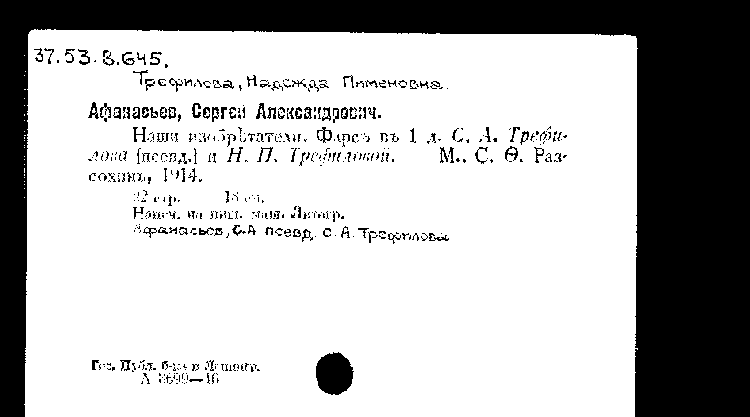 37.53.8.645.
Трефилова, Надежда Пименовна.
Афанасьев, Сергей Александрович.
Наши изобрѣтатели. Фарсъ въ 1 д. С. А. Трефи-
лова [псевд.] и Н. П. Трефиловой. М., С. Ѳ. Раз-
сохинъ, 1914.
22 стр. 18 см.
Напеч. на пиш. маш. Литогр.
Афанасьев, С.А. псевд. С. А. Трефилова
Гос. Публ. б-ка в Ленингр.